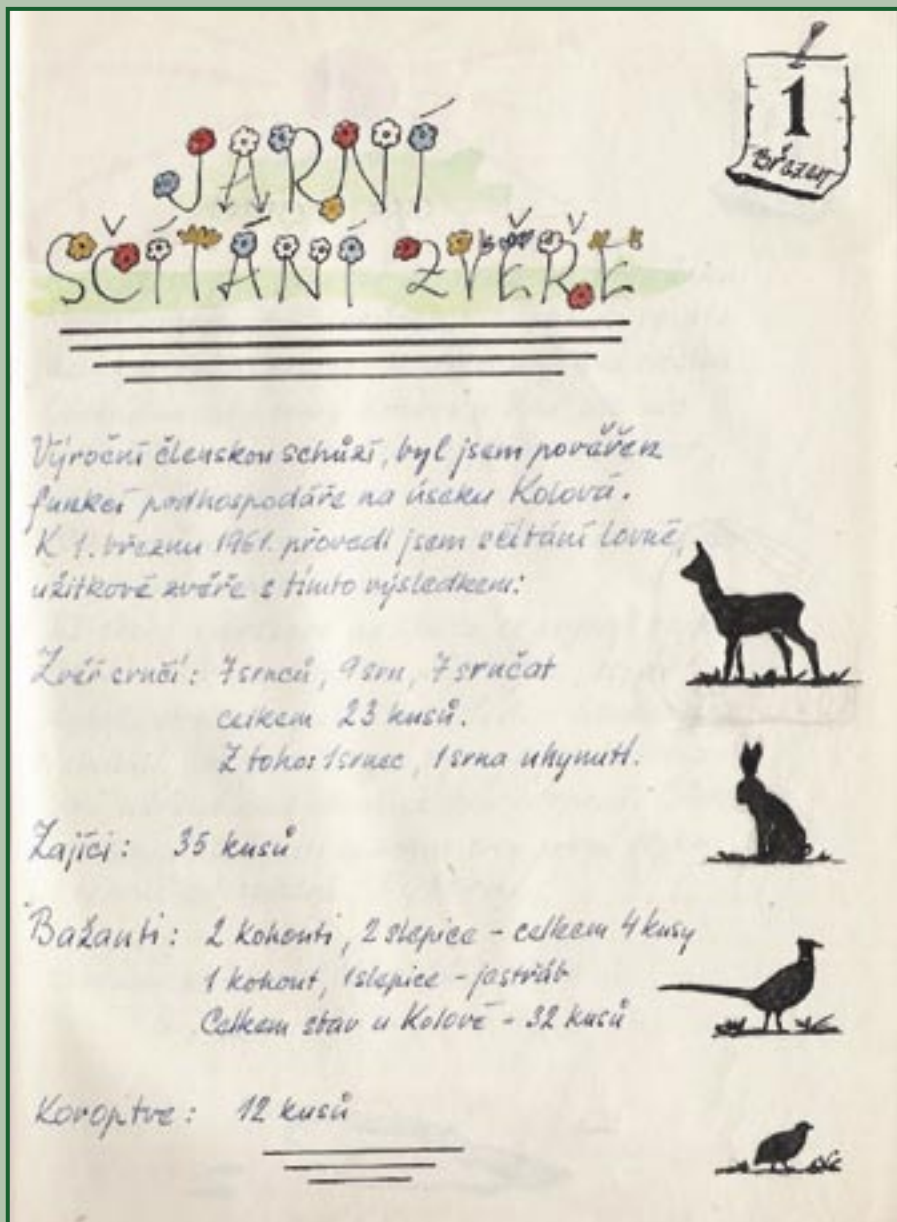 1
BŘEZEN
JARNÍ
SČÍTÁNÍ ZVĚŘE
Výroční členskou schůzí, byl jsem pověřen
funkcí podhospodáře na úseku Kolová.
K 1. březnu 1961. provedl jsem sčítání lovné,
užitkové zvěře s tímto výsledkem:
Zvěř srnčí: 7 srnců, 9 srn, 7 srnčat
celkem 23 kusů.
Z toho: 1 srnec, 1 srna uhynutí.
Zajíci: 35 kusů
Bažanti: 2 kohouti, 2 slepice - celkem 4 kusy
1 kohout, 1 slepice - jestřáb
Celkem stav u Kolové - 32 kusů
Koroptve: 12 kusů